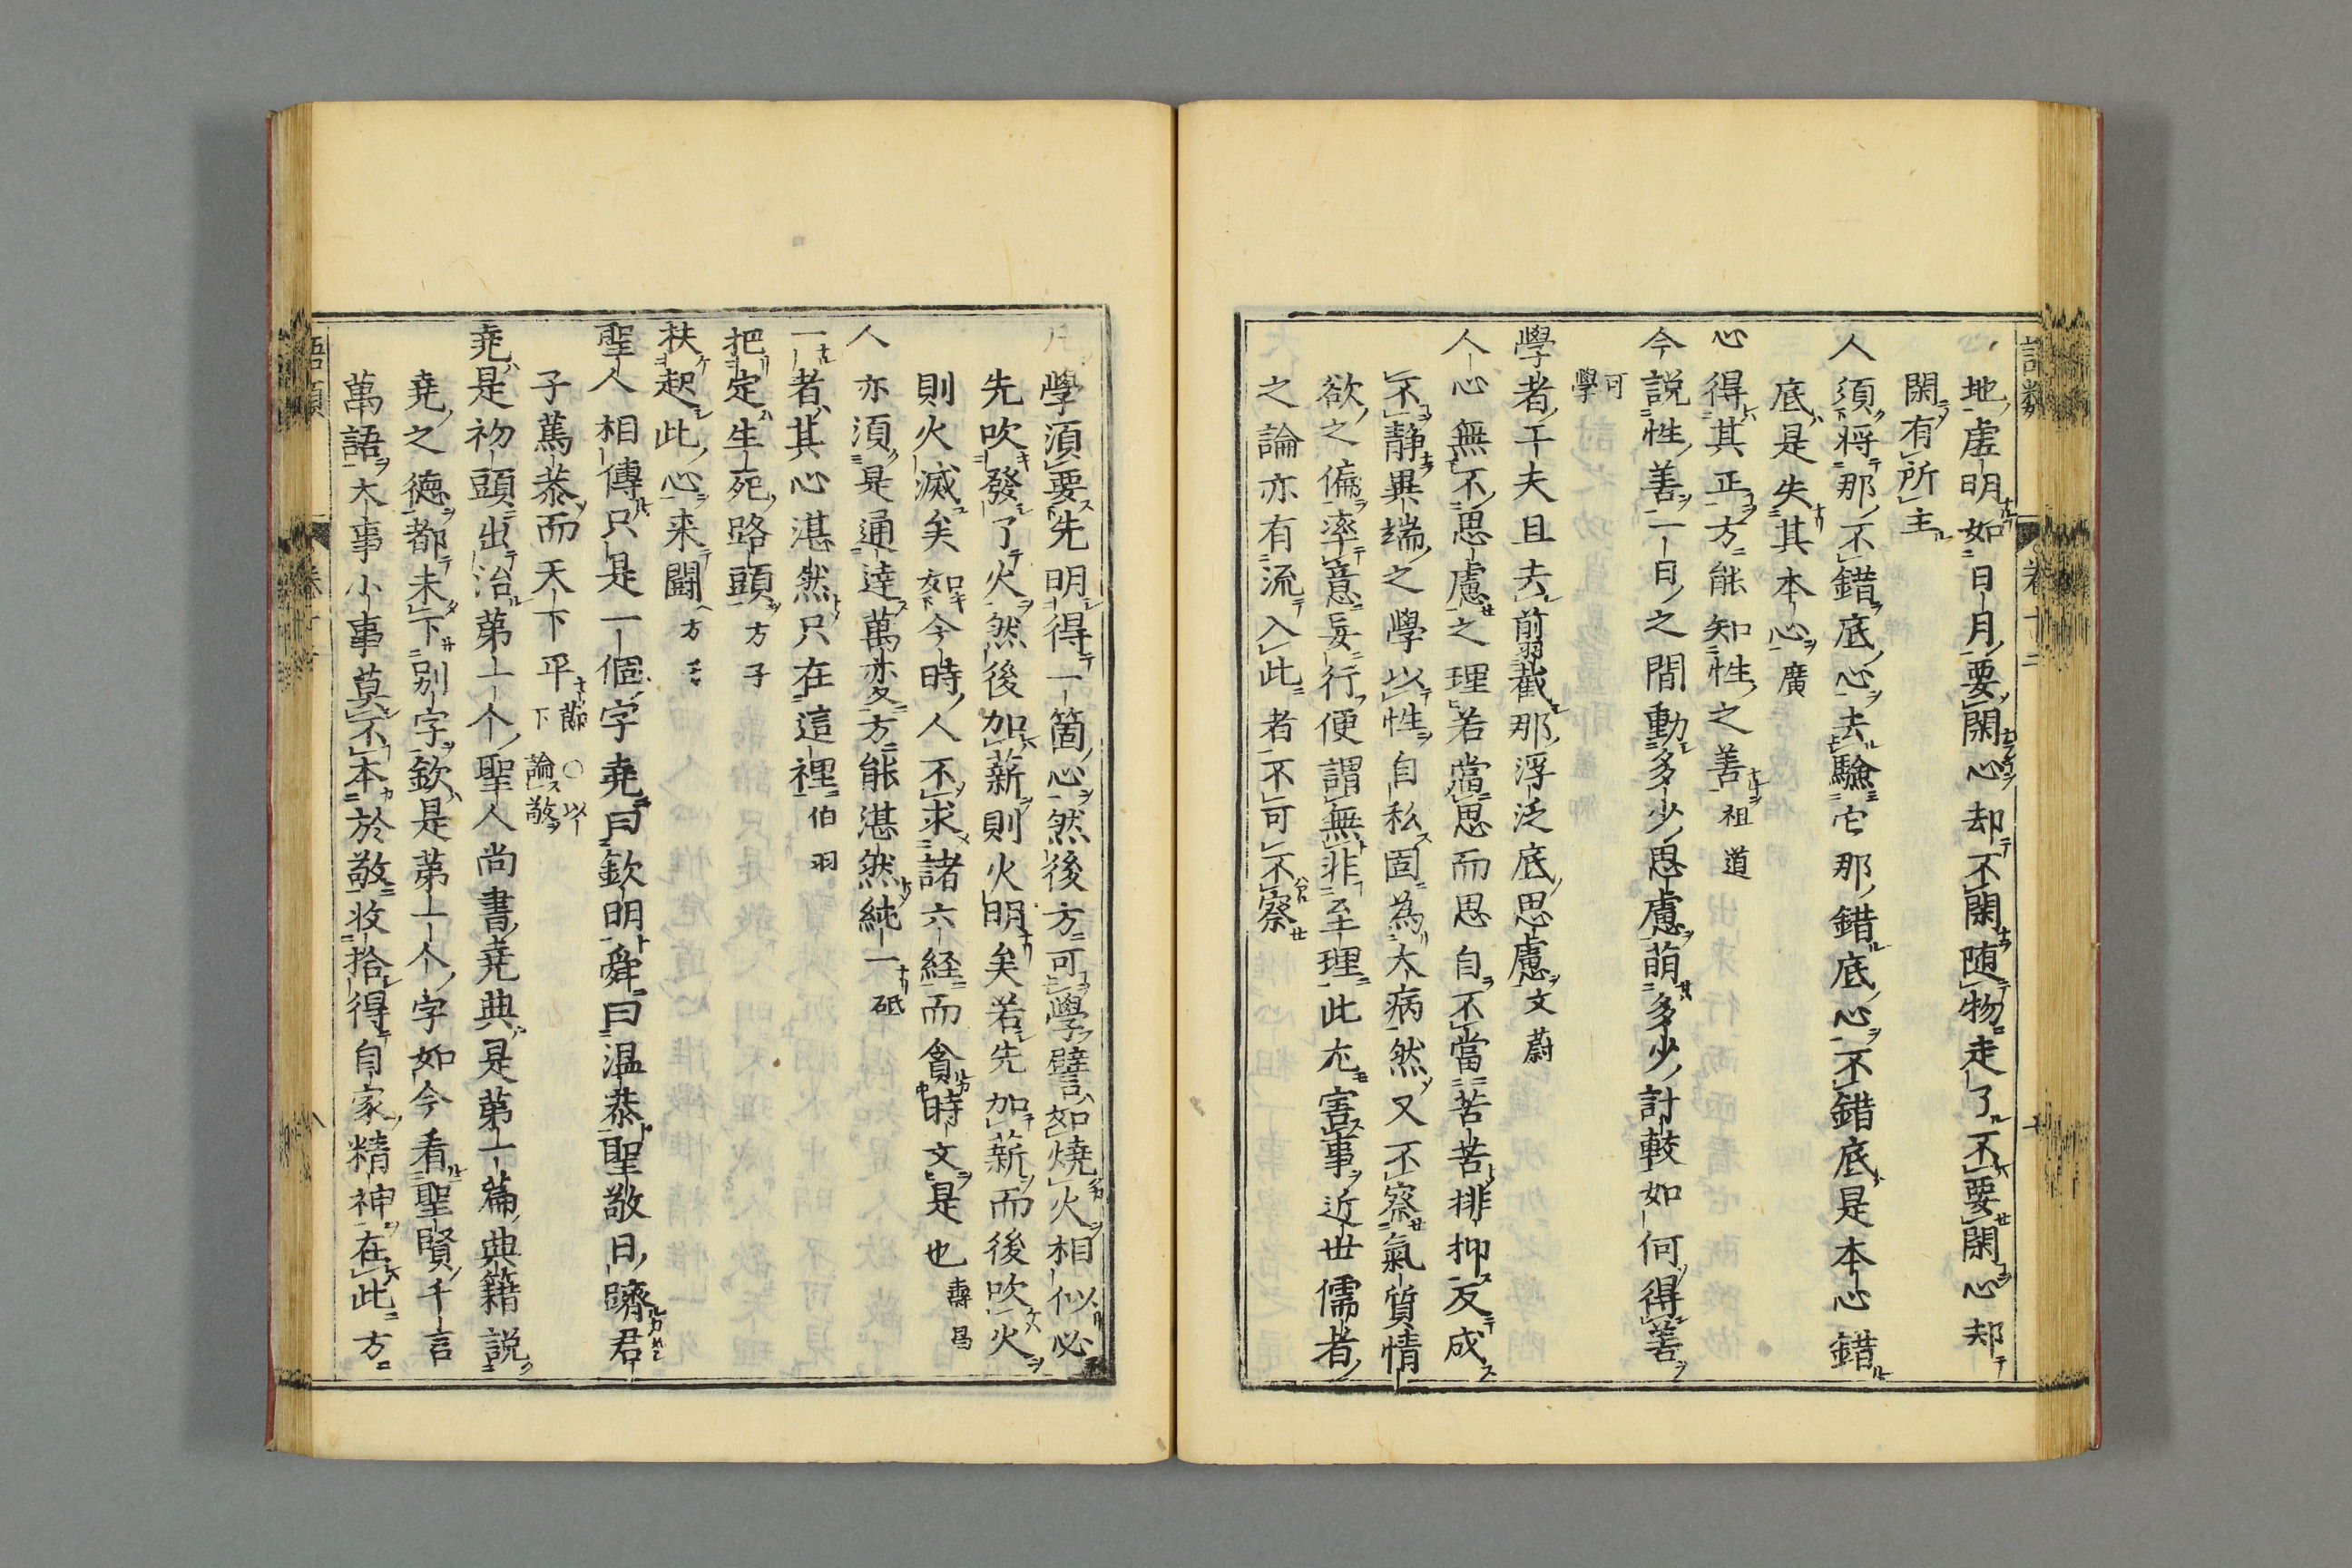 地虚明如日月要閑心却不閑随物走了不要閑心却
閑有所主
人須将那不錯底心去驗它那錯底心不錯底是本心錯
底是失其本心廣
心得其正方能知性之善祖道
今説性善一日之間動多少思慮萌多少計較如何得善
可
學
學者千夫且去剪截那浮泛底思慮文蔚
人心無不思慮之理若當思而思自不當苦苦排抑反成
不靜異端之學以性自私固為大病然又不察氣質情
欲之偏率意妄行便謂無非至理此尤害事近世儒者
之論亦有流入此者不可不察
凡學須要先明得一箇心然後方可學譬如燒火相似必
先吹發了火然後加薪則火明矣若先加薪而後吹火
則火滅矣如今時人不求諸六経而貪時文是也壽昌
人亦須是通達萬変方能湛然純一砥
一者其心湛然只在這裡伯羽
把定生死路頭方子
扶起此心来闘方子
聖人相傳只是一個字堯曰欽明舜曰温恭聖敬日躋君
子篤恭而天下平節 ○以
下 論敬
堯是初頭出治第一个聖人尚書堯典是第一篇典籍説
堯之徳都未下別字欽是第一个字如今看聖賢千言
萬語大事小事莫不本於敬收拾得自家精神在此方
語類
卷十二
十
語類